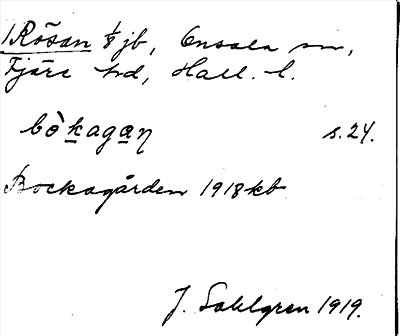 1 Rösan 1/8 jb, Onsala sn,
Fjäre hd, Hall. l.
bò̀kagaη s. 24.
Bockagården 1918 kb
J. Sahlgren 1919.